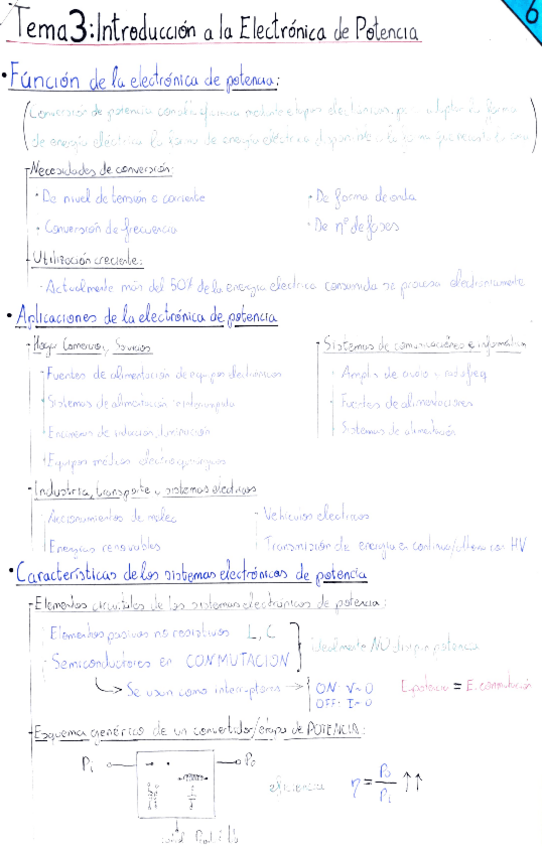 6
Tema 3: Introducción a la Electrónica de Potencia
• Función de la electrónica de potencia:
(Conversión de potencia con alta eficiencia mediante etapas electrónicas para adaptar la forma
de energía eléctrica la forma de energía eléctrica disponible a la forma que necesita la carga)
- Necesidades de conversión:
· De nivel de tensión o corriente
· De forma de onda
· Conversión de frecuencia
· De nº de fases
- Utilización creciente:
· Actualmente más del 50% de la energía eléctrica consumida se procesa electrónicamente
• Aplicaciones de la electrónica de potencia
- Hogar, Comercio, Servicios
- Sistemas de comunicaciones e informática
· Fuentes de alimentación de equipos electrónicos
· Ampl. de audio y radiofreq
· Sistemas de alimentación ininterrumpida
· Fuentes de alimentaciones
· Encimeras de inducción, iluminación
· Sistemas de alimentación
· Equipos médicos electroquirúrgicos
- Industria, transporte y sistemas eléctricos
Accionamientos de motor
- Vehículos eléctricos
Energías renovables
Transmisión de energía en continua/alterna con HV
• Características de los sistemas electrónicos de potencia
- Elementos circuitales de los sistemas electrónicos de potencia:
Elementos pasivos no resistivos L, C
idealmente NO disipan potencia
Semiconductores en CONMUTACION
Se usan como interruptores → ON: V~0
OFF: I~0
E.potencia = E.conmutación
- Esquema genérico de un convertidor/etapa de POTENCIA:
Pi
Po
eficiencia η = Po/Pi ↑↑